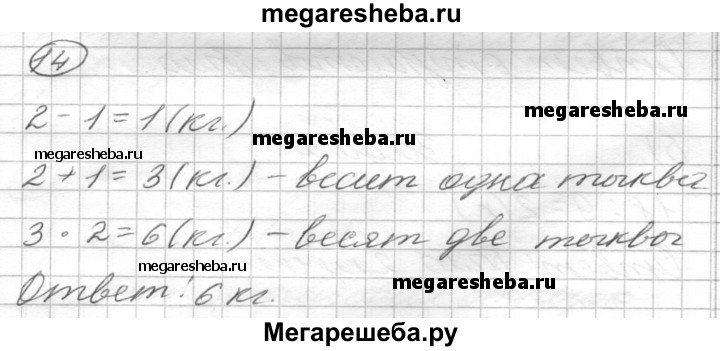 megaresheba.ru
14
2 - 1 = 1 (кг.)
megaresheba.ru
megaresheba.ru
2 + 1 = 3 (кг.) - весит одна тыква
3 · 2 = 6 (кг.) - весят две тыквы
megaresheba.ru
megaresheba.ru
Ответ: 6 кг.
Мегарешеба.ру